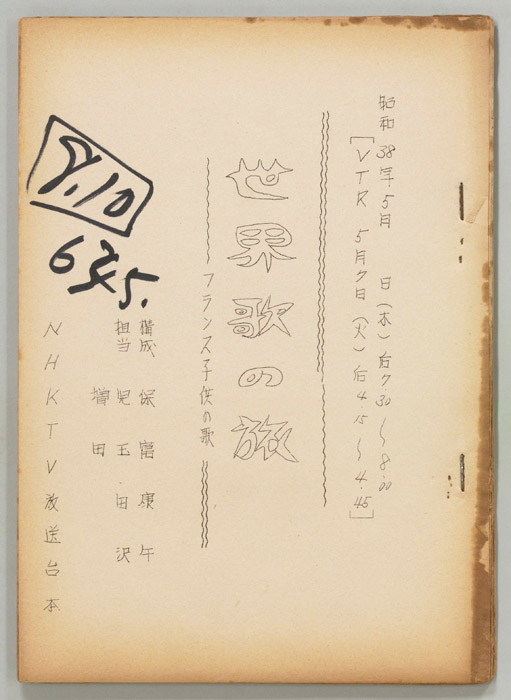 昭和38年5月　日（木）后7.30～8.00
［VTR 5月7日（火）后4.15～4.45］
世界歌の旅
フランス子供の歌
構成 保富康午
担当 児玉・田沢
増田
NHKTV放送台本